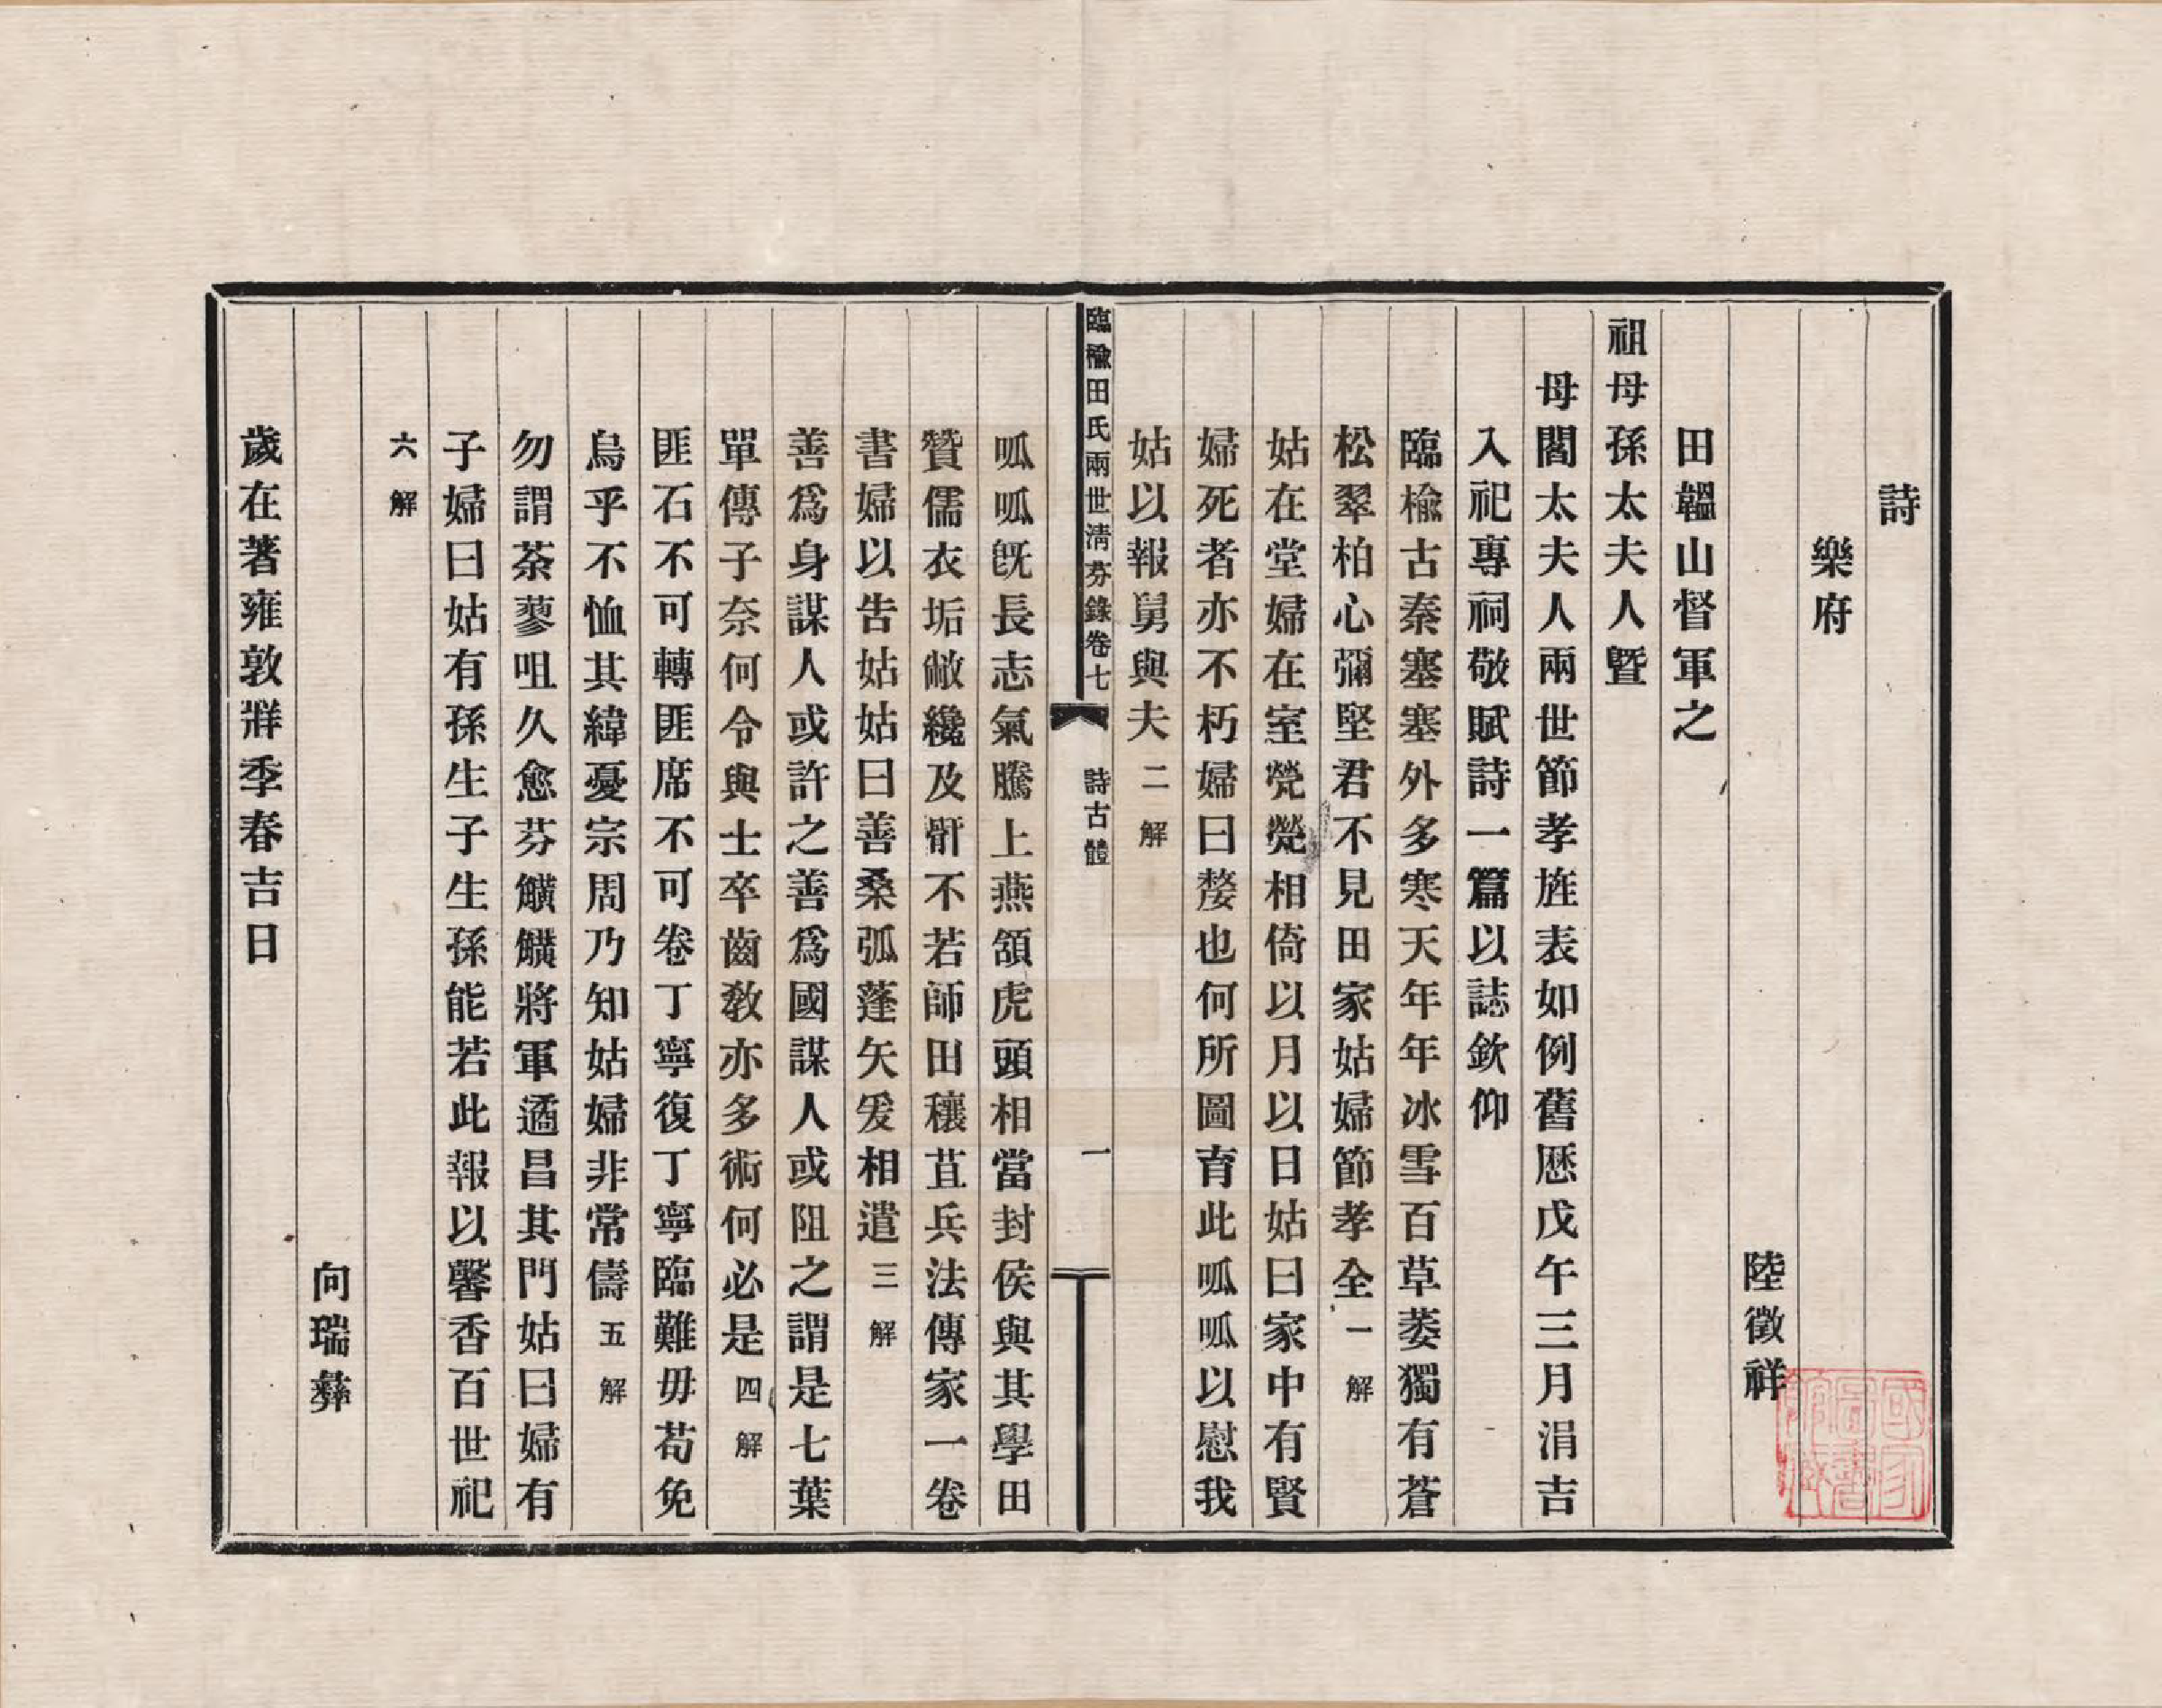 詩
樂府
陸徵祥
田韞山督軍之
祖母孫太夫人曁
母閻太夫人兩世節孝旌表如例舊厯戊午三月涓吉
入祀專祠敬賦詩一篇以誌欽仰
臨楡古秦塞塞外多寒天年年冰雪百草萎獨有蒼
松翠柏心彌堅君不見田家姑婦節孝全一解
姑在堂婦在室煢煢相倚以月以日姑曰家中有賢
婦死者亦不朽婦曰嫠也何所圖育此呱呱以慰我
姑以報舅與夫二解
臨楡田氏兩世淸芬錄卷七
詩古體
一
呱呱旣長志氣騰上燕頷虎頭相當封侯與其學田
贊儒衣垢敝纔及骭不若師田穰苴兵法傳家一卷
書婦以告姑姑曰善桑弧蓬矢爰相遣三解
善爲身謀人或許之善爲國謀人或阻之謂是七葉
單傳子奈何令與士卒齒敎亦多術何必是四解
匪石不可轉匪席不可卷丁寧復丁寧臨難毋苟免
烏乎不恤其緯憂宗周乃知姑婦非常儔五解
勿謂荼蓼咀久愈芬觵觵將軍遹昌其門姑曰婦有
子婦曰姑有孫生子生孫能若此報以馨香百世祀
六解
向瑞彝
歲在著雍敦牂季春吉日
國家圖書館藏